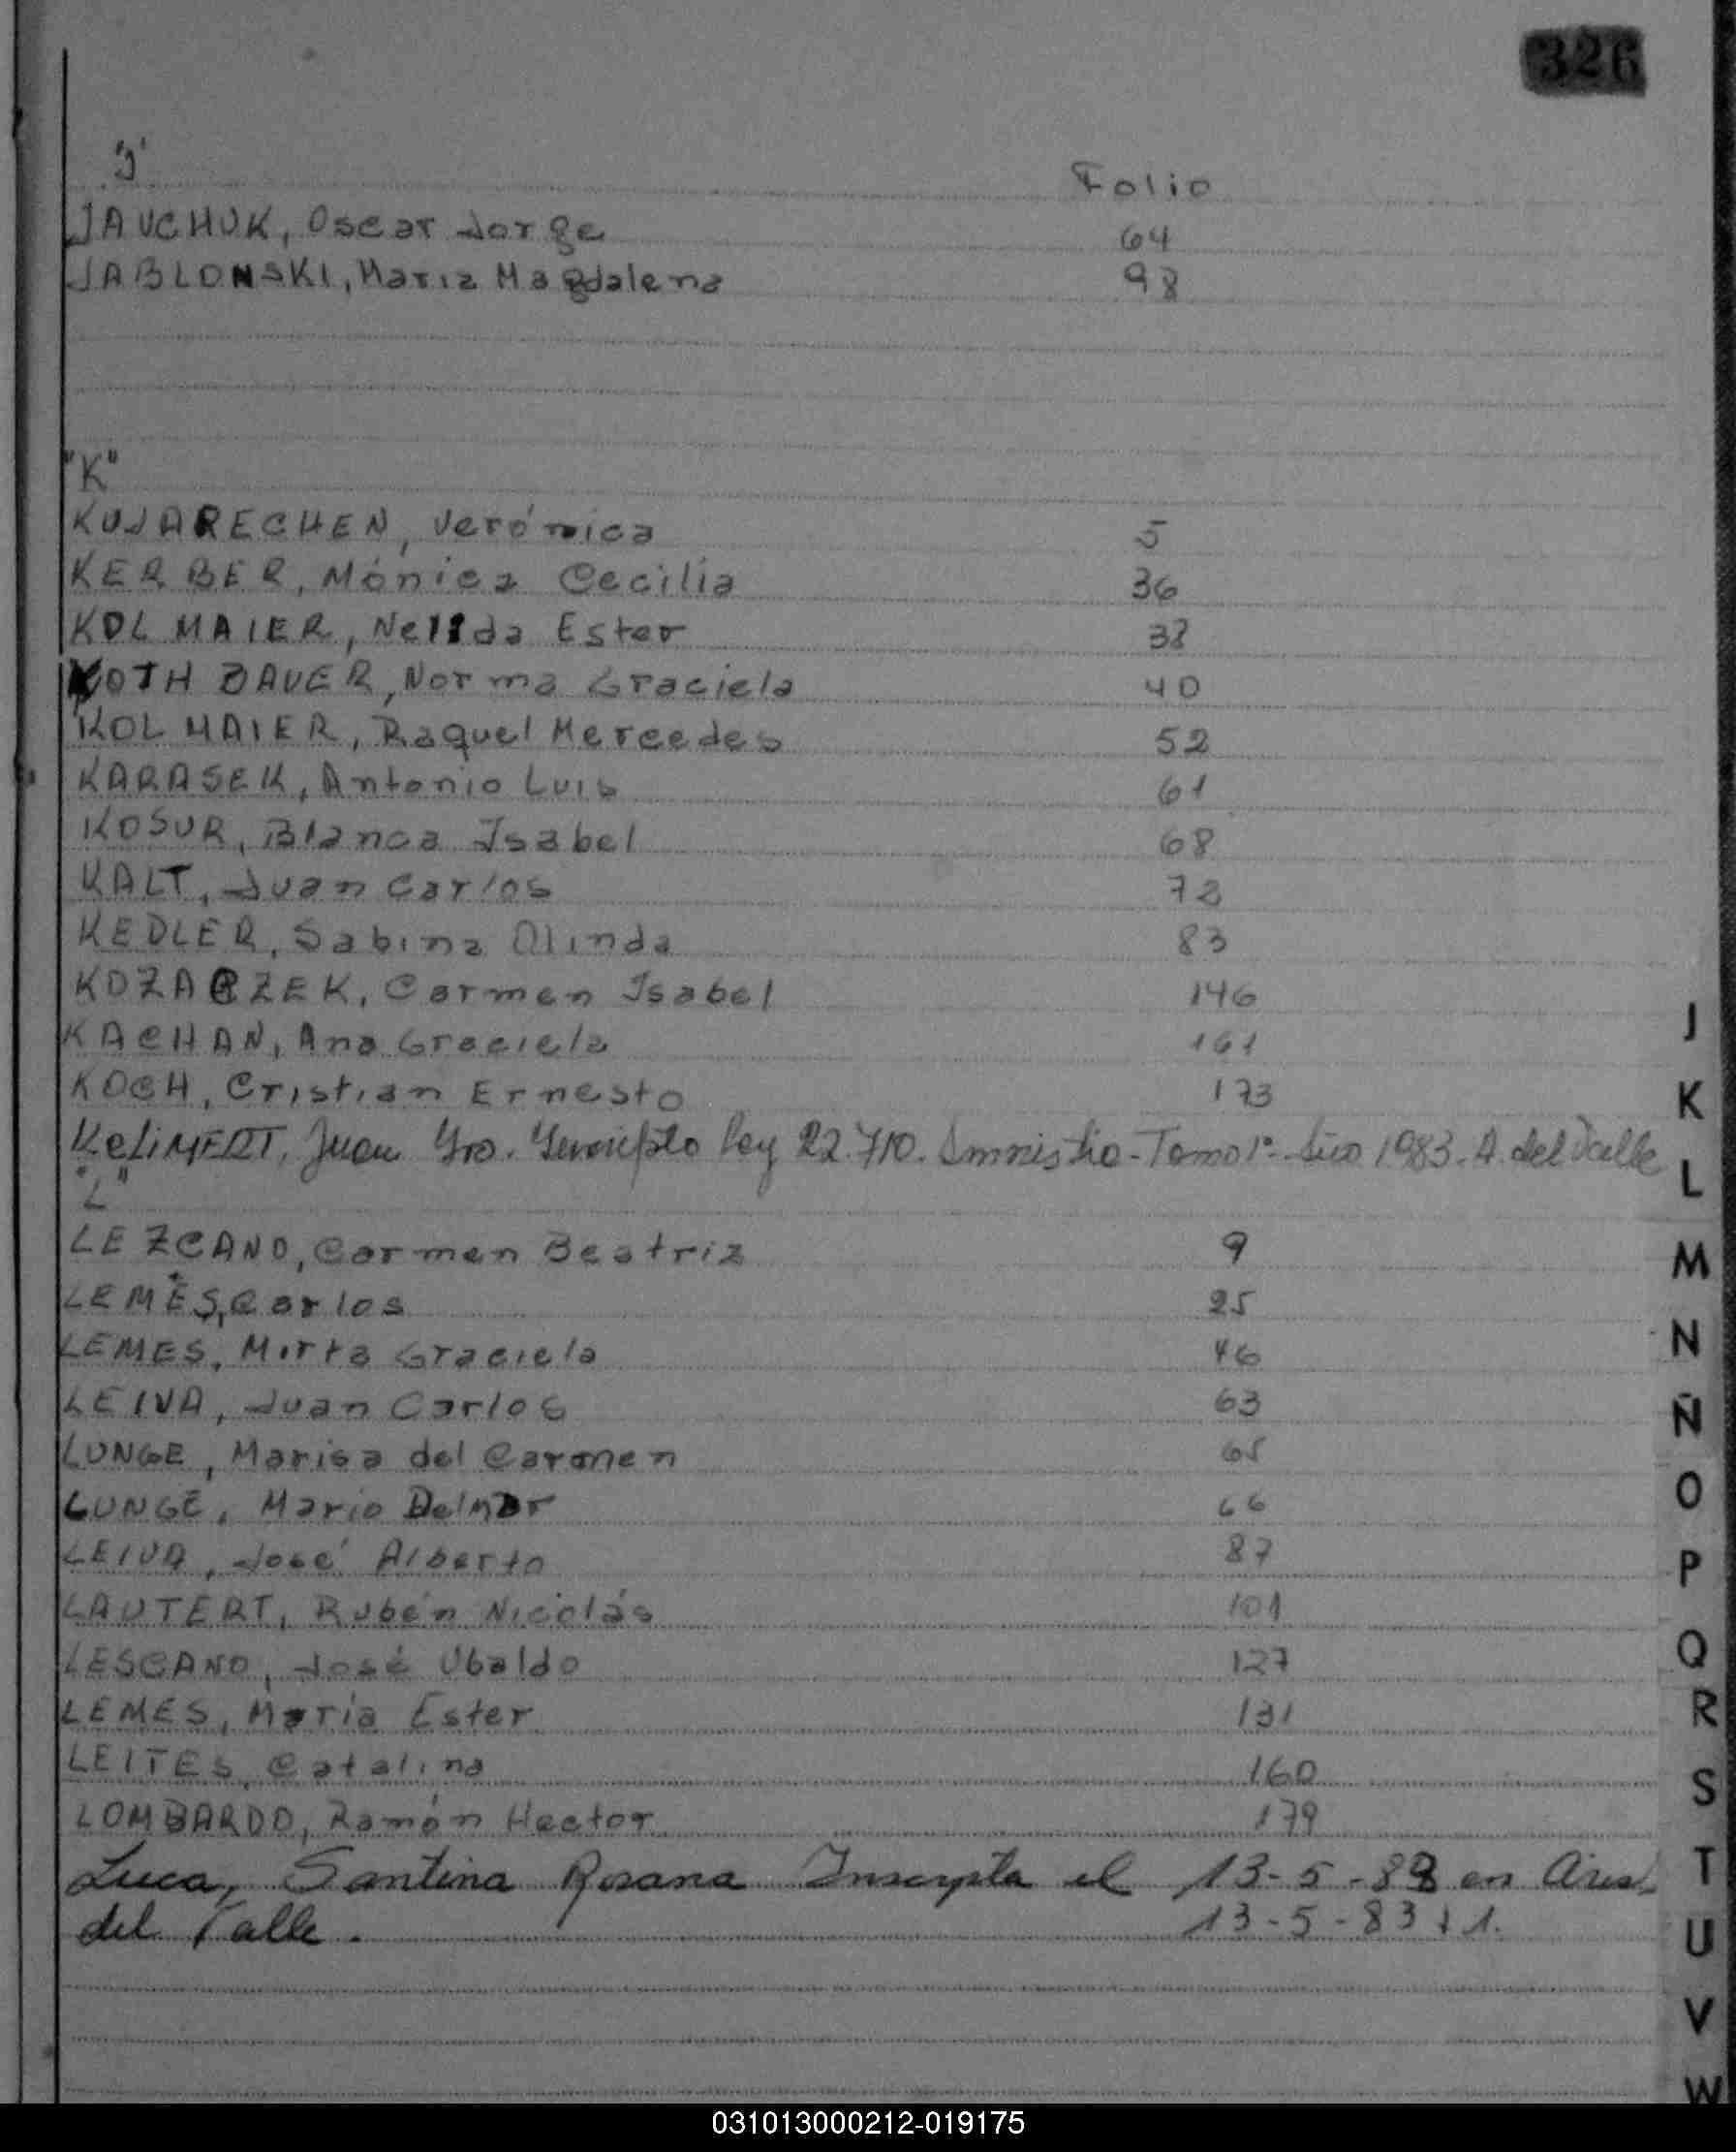 326
"J"
Folio
JAUCHUK, Oscar Jorge 64
JABLONSKI, Maria Magdalena 98
"K"
KUJARECHEN, Verónica 5
KERBER, Mónica Cecilia 36
KOLMAIER, Nelida Ester 38
KOTH BAUER, Norma Graciela 40
KOLMAIER, Raquel Mercedes 52
KARASEK, Antonio Luis 61
KOSUR, Blanca Isabel 68
KALT, Juan Carlos 72
KEDLER, Sabina Olinda 83
KOZACZEK, Carmen Isabel 146
KACHAN, Ana Graciela 161
KOCH, Cristian Ernesto 173
Juan Ley 22.710. Amnistia - Tomo 1º - Año 1983. A. del Valle
"L"
LEZCANO, Carmen Beatriz 9
LEMES, Carlos 25
LEMES, Mirta Graciela 46
LEIVA, Juan Carlos 63
LUNGE, Marisa del Carmen 65
LUNGE, Mario Delmar 66
LEIVA, José Alberto 87
LAUTERT, Rubén Nicolás 101
LESCANO, José Ubaldo 127
LEMES, María Ester 131
LEITES, Catalina 160
LOMBARDO, Ramón Hector 179
Luca, Santina Rosana Inscripta el 13-5-83 en Arist.
del Valle. 13-5-83 1.
J
K
L
M
N
Ñ
O
P
Q
R
S
T
U
V
W
031013000212-019175